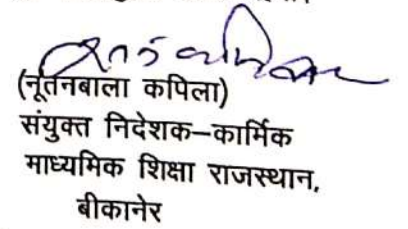 (नूतनबाला कपिला)
संयुक्त निदेशक–कार्मिक
माध्यमिक शिक्षा राजस्थान,
बीकानेर